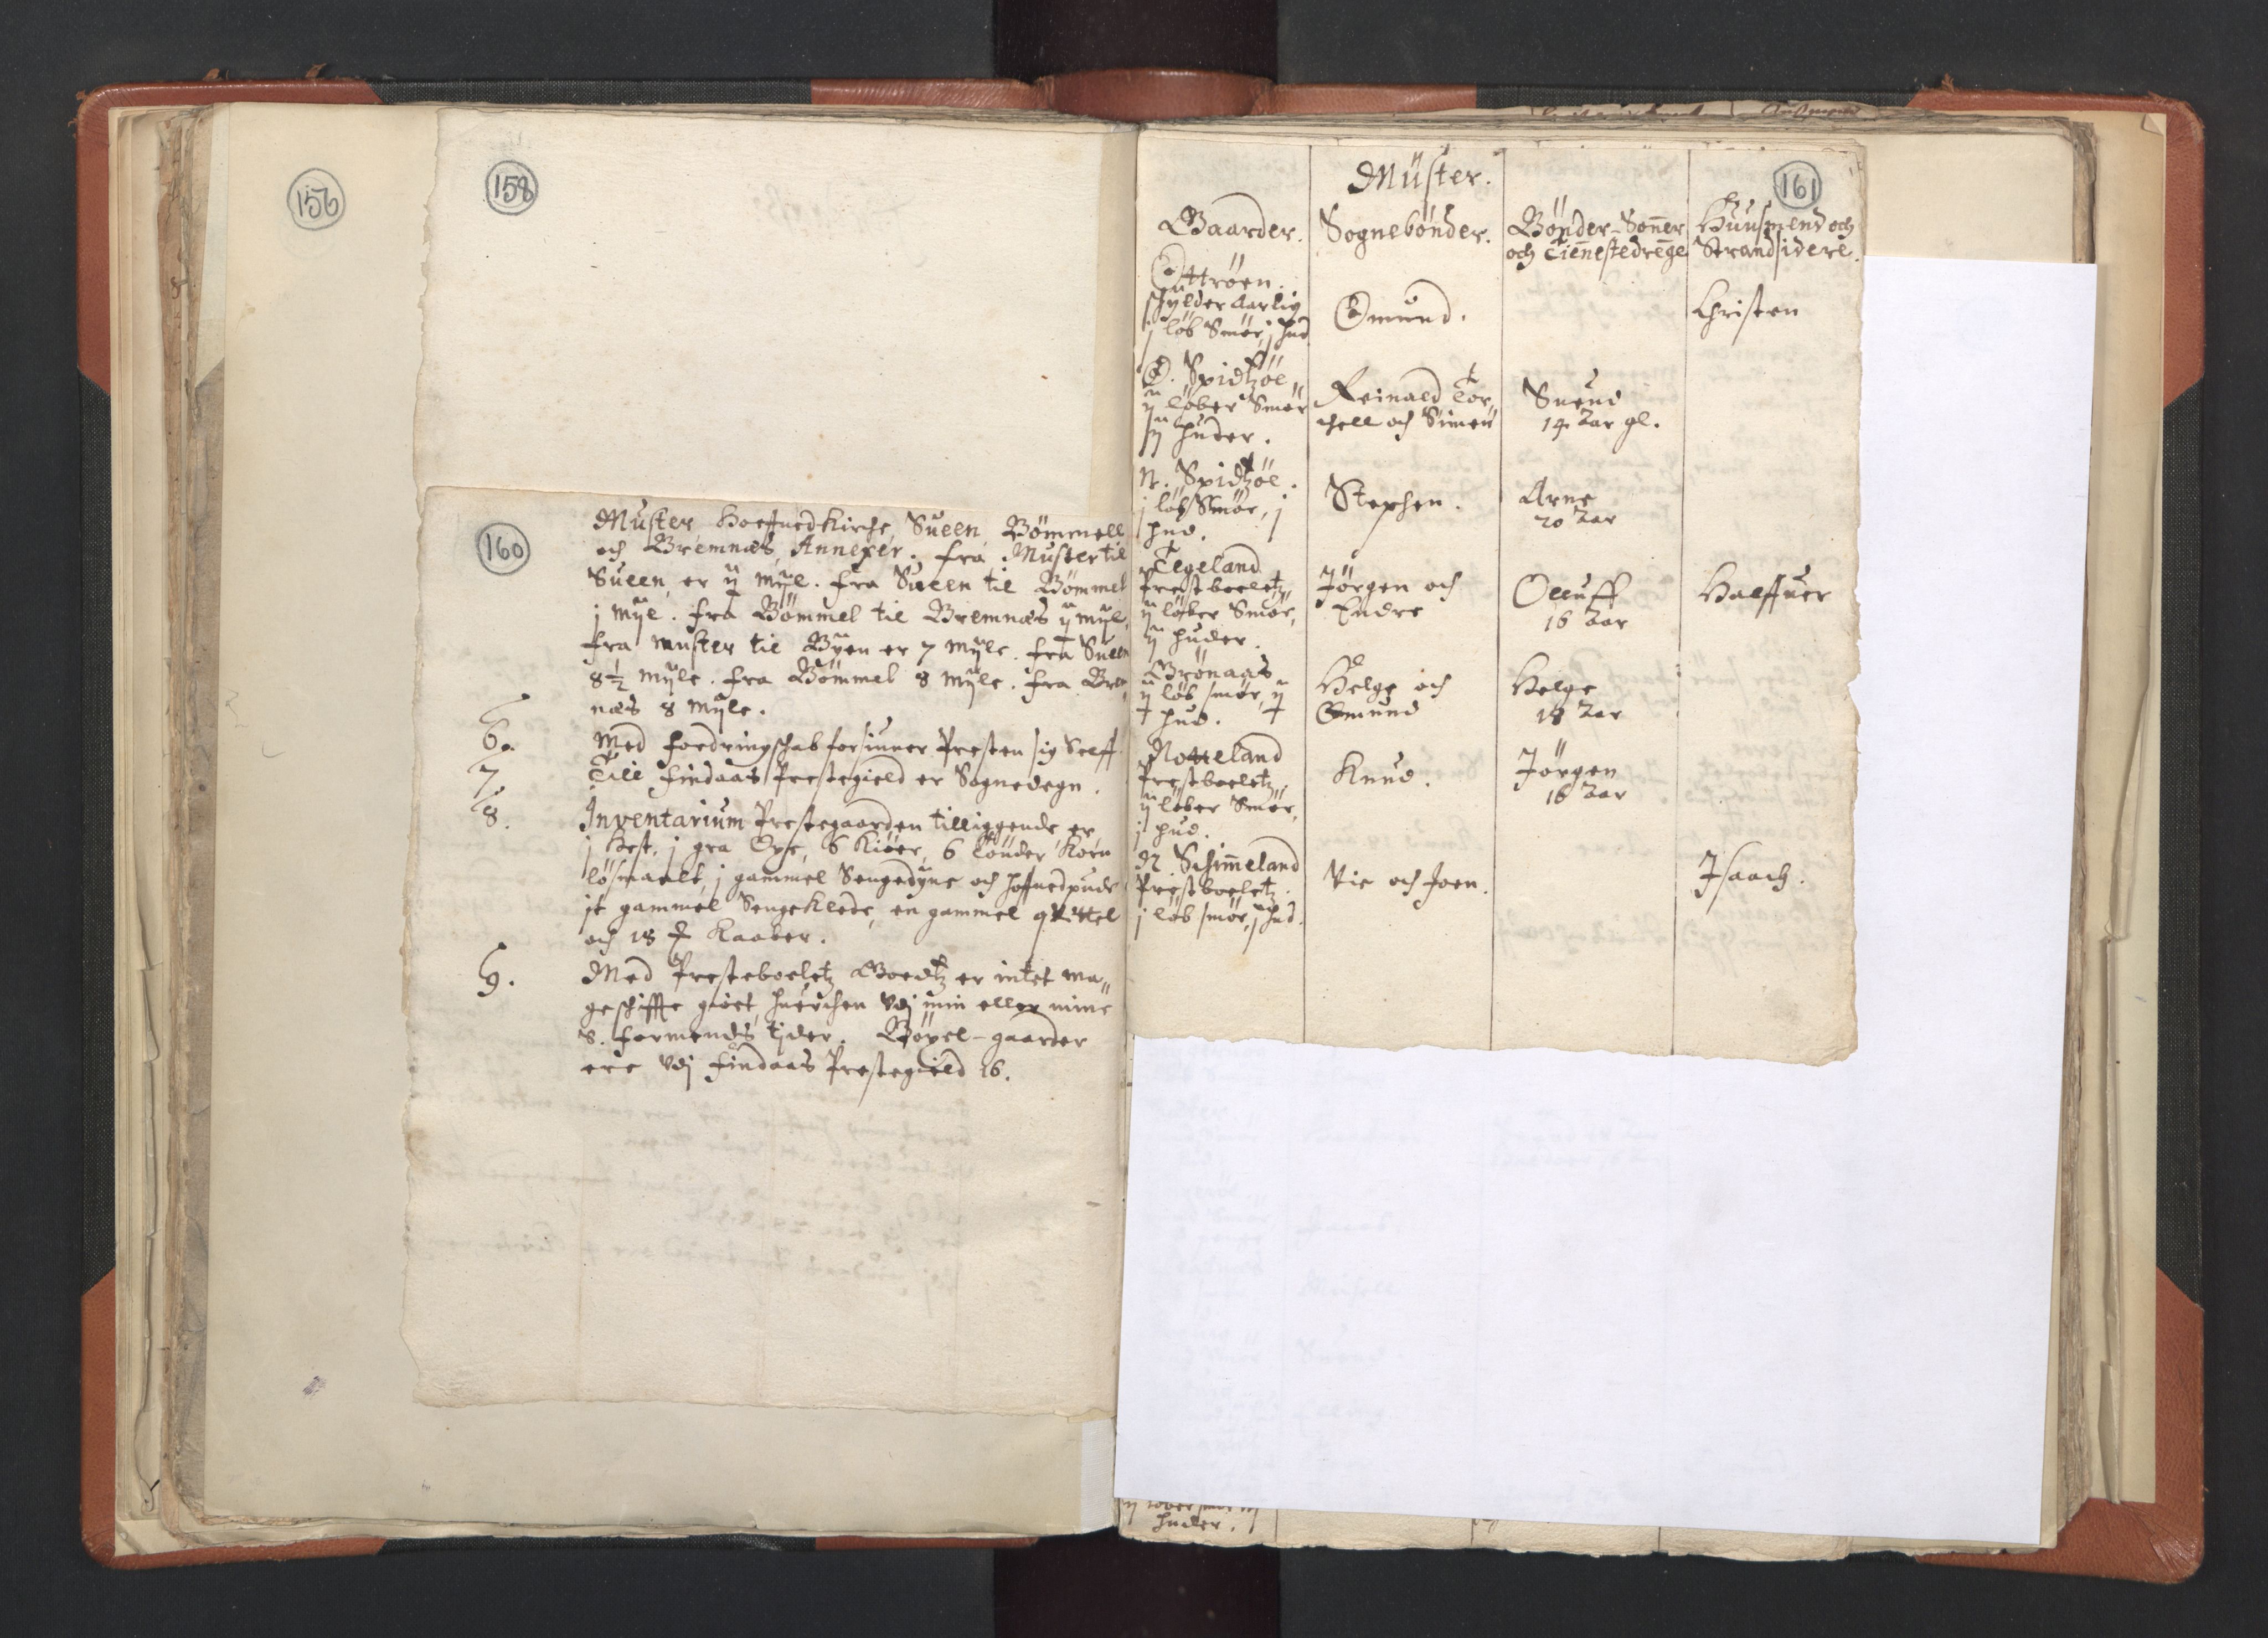 156
158
160
Muster Hoeffued Kirche, Sueen, Bømmell
och Bremnæs, Annexer. fra Muster til
Sueen er ij myl. fra Sueen til Bømmel
j myl. fra Bømmel til Bremnæs ij myl,
fra muster til Byen er 7 myle. fra Sueen
8½ myle. fra Bømmel 8 myle. fra Brem
næs 8 myle.
6. Med fordringschab forsiuner Presten sig Selff.
7. Till findaas Prestegield er Sognedegn.
8. Inventarium Prestegaarden tilliggende er
j Hest, j gra Oxe, 6 Kiøer, 6 tønder Korn
løsmaalt, j gammel Sengedyne och hoffuedpude
it gammel Sengeklede, en gammel qvittel
och 18 Kaaber.
9. Med Presteboeletz Goedtz er intet ma„
geschiffte giort, huerchen vdj min eller mine
S. formends tjder. Bøxel-gaarder
ere vdj findaas Prestegield 16.
161
Müster.
Gaarder. Sognebönder. Bønder-Sønner och Tienestedrenge Huusmend och Strandsidere.
Ottrøen.
schylder Aarlig
j løb Smør, j hud
Omund. Christen
O. Spidtzøe
ij løber Smør
hüder.
Reinald Tor„
chell och Simen
Suend
14 Aar gl.
N. Spidtzøe.
j løb Smør, j
hud.
Stephen.
Arne
20 Aar
Tegeland
Prestboeletz,
ij løber Smør,
ij huder.
Jørgen och
Endre
Oluff
16 Aar
Halffuer
Grønaas
løb smør,
hud.
Helge och
Omund
Helge
18 Aar
Notteland
Prestboeletz,
ij løber Smør,
j hud.
Knud.
Jørgen
16 Aar
N. Schimmeland
Prestboeletz.
j løb smør, j hud.
Vie och Joen.
Isaach.
huder.